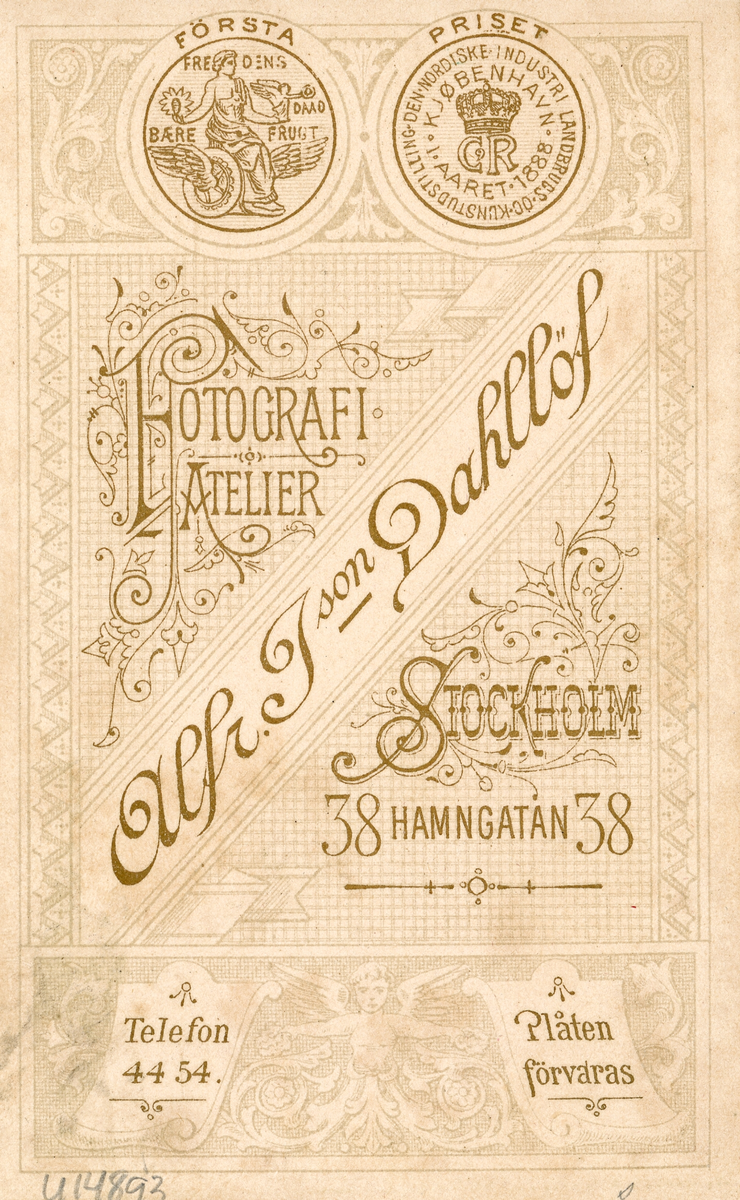 FÖRSTA PRISET
FREDENS DAAD
BÆRE FRUGT
DEN·NORDISKE·INDUSTRI LANDBRUGS·OG·KUNSTUDSTILLING·
KJØBENHAVN·
I·AARET·1888·
CR
FOTOGRAFI
ATELIER
Alfr. Json Dahllöf
STOCKHOLM
38 HAMNGATAN 38
Telefon
44 54.
Plåten
förvaras
U14893